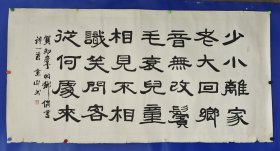 少小離家
老大回鄉
音無改鬢
毛衰兒童
相見不相
識笑問客
從何處來
賀知章回鄉偶書
詩一首